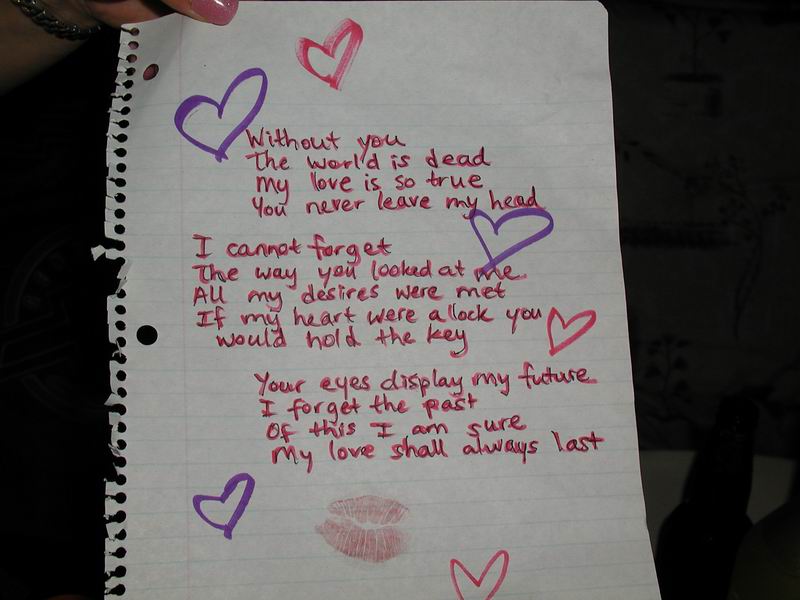 Without you
The world is dead
My love is so true
You never leave my head
I cannot forget
The way you looked at me
All my desires were met
If my heart were a lock you
would hold the key
Your eyes display my future
I forget the past
Of this I am sure
My love shall always last